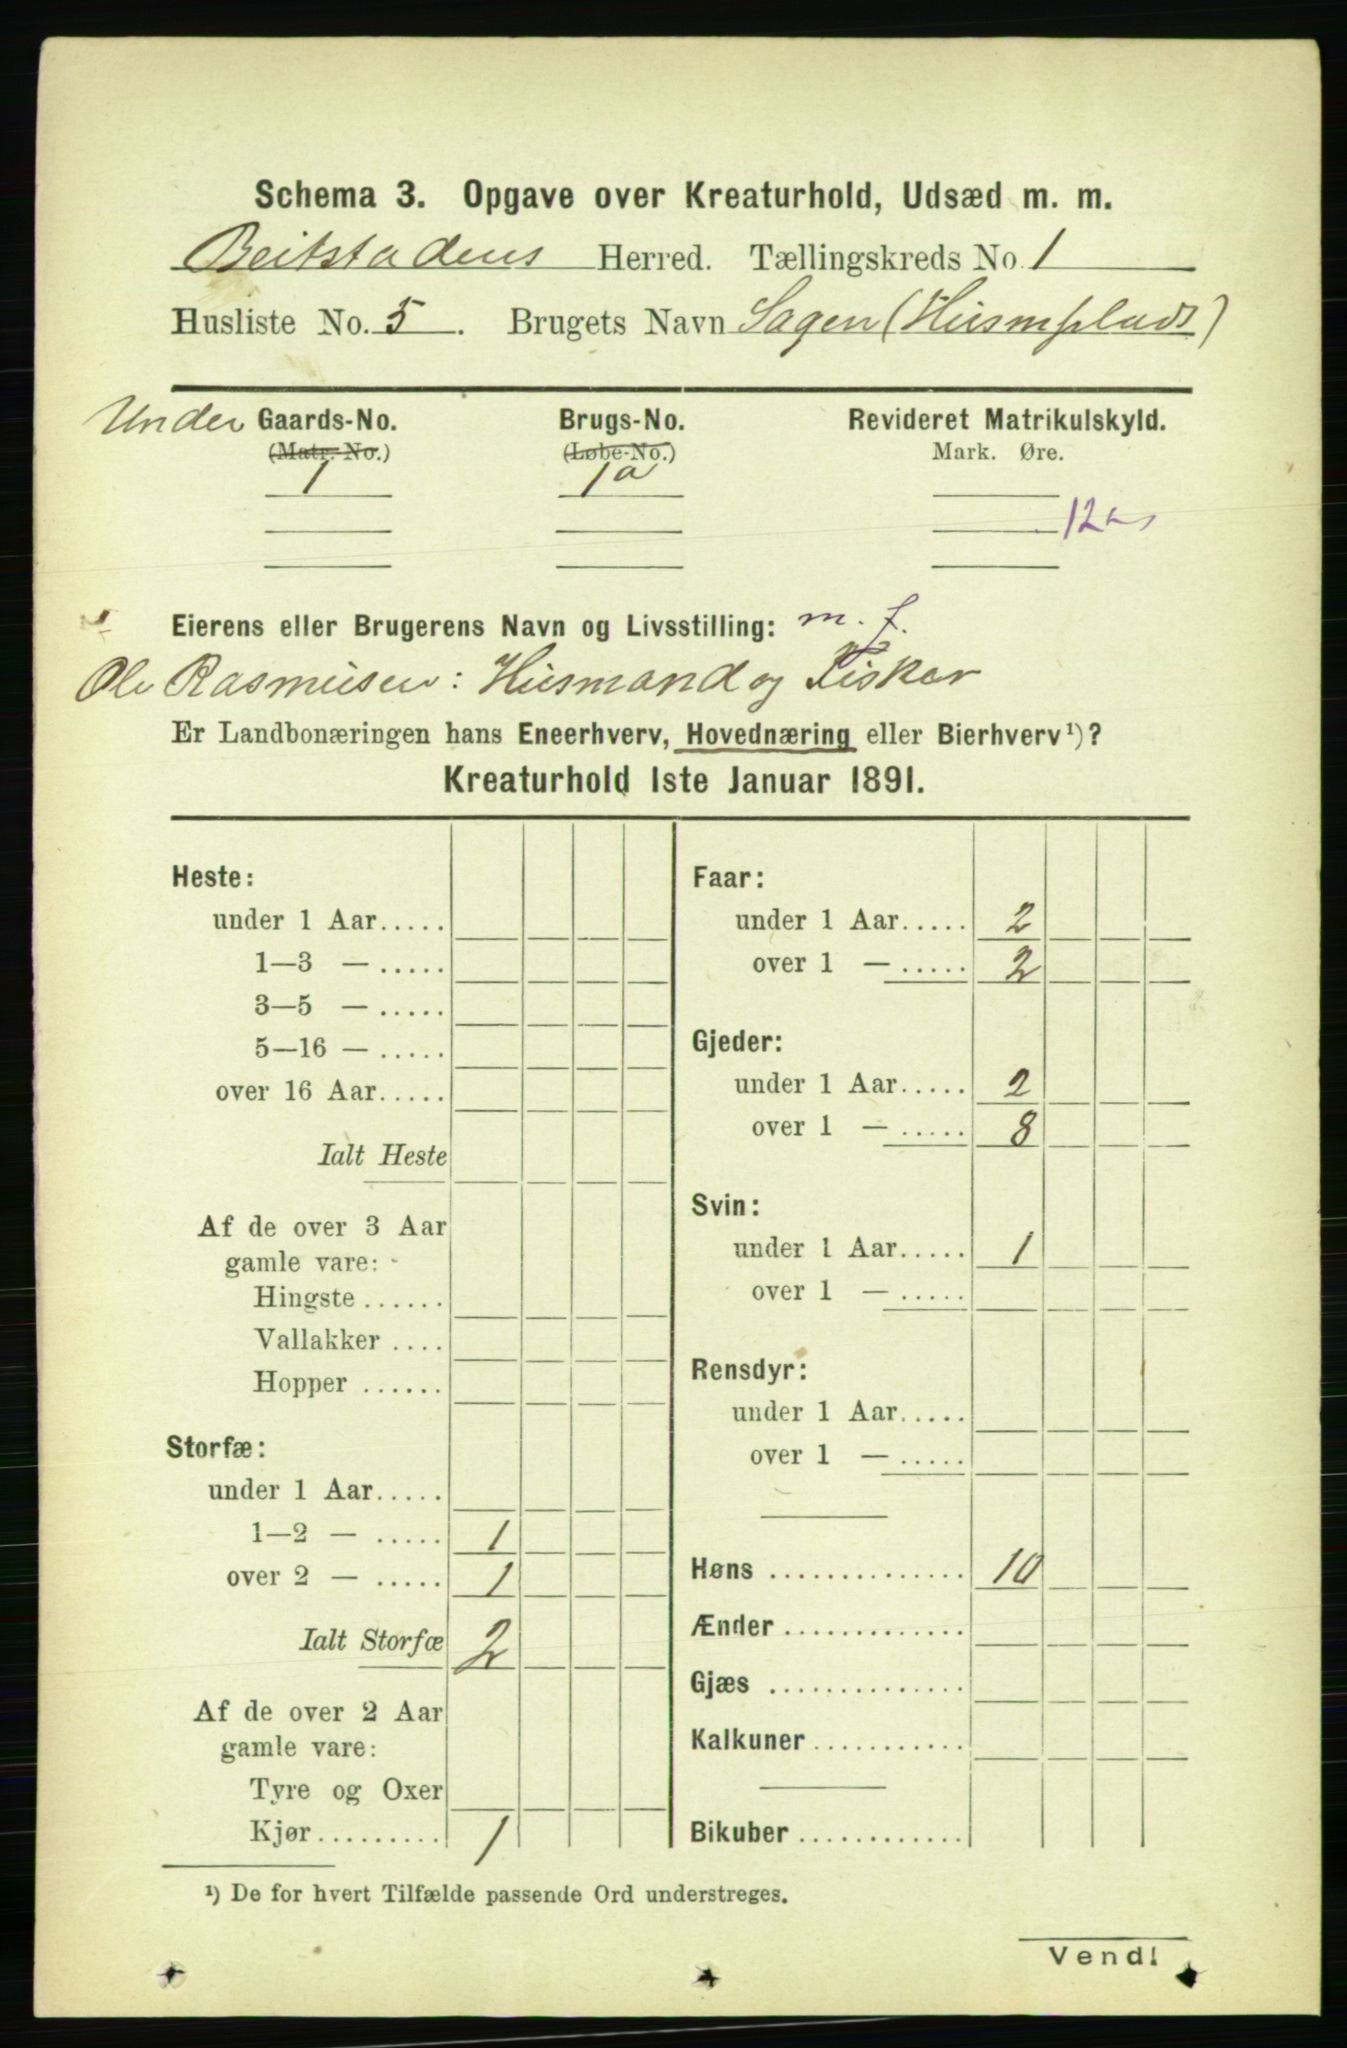 Schema 3. Opgave over Kreaturhold, Udsæd m. m.
Beitstadens Herred. Tællingskreds No. 1
Husliste No. 5. Brugets Navn Sagen (Husmplads)
Under Gaards-No. Brugs-No. Revideret Matrikulskyld.
(Matr.-No.) (Løbe-No.) Mark. Øre.
1 1a
12
Eierens eller Brugerens Navn og Livsstilling: m. f.
Ole Rasmusen: Husmand og Fisker
Er Landbonæringen hans Eneerhverv, Hovednæring eller Bierhverv¹)?
Kreaturhold 1ste Januar 1891.
Heste:
under 1 Aar.....
1—3 — .....
3—5 — .....
5—16 — .....
over 16 Aar.....
Ialt Heste
Af de over 3 Aar
gamle vare:
Hingste ......
Vallakker ....
Hopper ......
Storfæ:
under 1 Aar.....
1—2 — ..... 1
over 2 — ..... 1
Ialt Storfæ 2
Af de over 2 Aar
gamle vare:
Tyre og Oxer
Kjør......... 1
Faar:
under 1 Aar..... 2
over 1 — ..... 2
Gjeder:
under 1 Aar..... 2
over 1 — ..... 8
Svin:
under 1 Aar..... 1
over 1 — .....
Rensdyr:
under 1 Aar.....
over 1 — .....
Høns .............. 10
Ænder .............
Gjæs ..............
Kalkuner ...........
Bikuber ............
¹) De for hvert Tilfælde passende Ord understreges.
Vend!